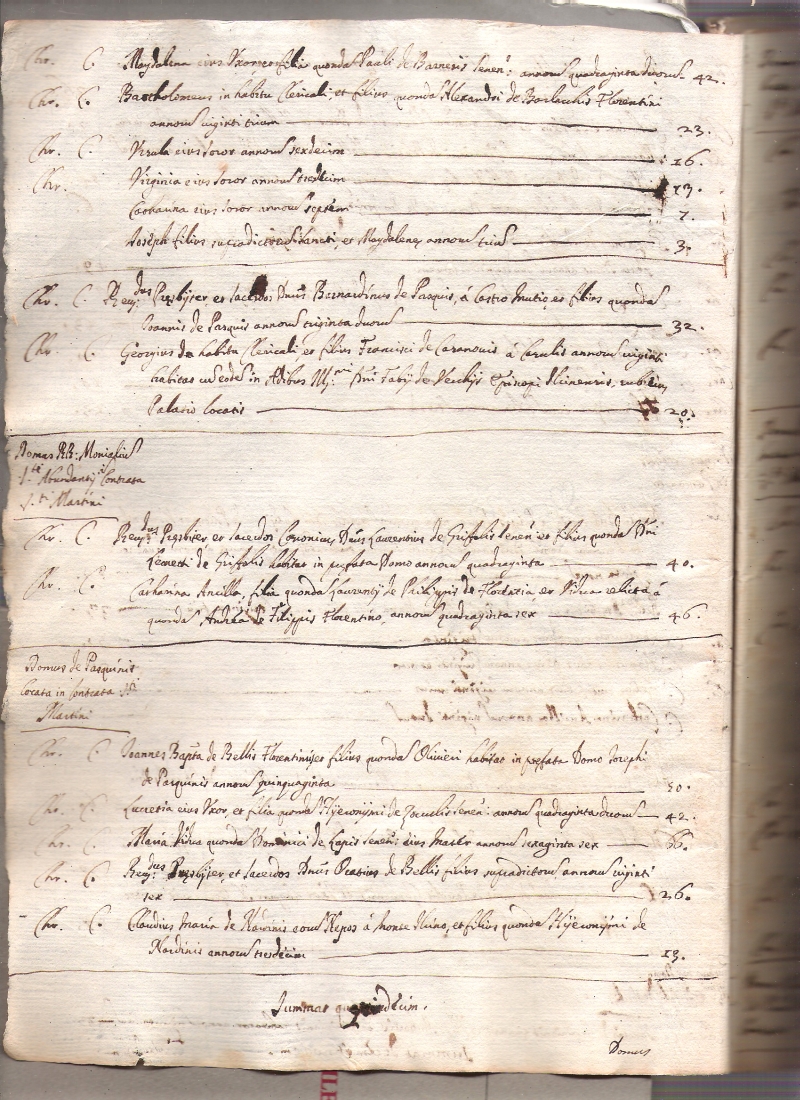 Chr. C. Magdalena eius Uxor et filia quondā Pauli de Barneris Senen: annorū quadraginta duorū 42.
Chr. C. Bartholomeus in habitu Clericali, et filius quondā Alexandri de Barlacchis Florentini
annorū viginti trium 23.
Chr. C. Virula eius soror annorū sexdecim 16.
Chr. Virginia eius soror annorū tredecim 13.
Catharina eius soror annorū septem 7.
Joseph filius supradictorū et Magdalene annorū trium 3.
Chr. C. Reve: dus Presbiter et sacerdos Dnus Bernardinus de Pasquis, à Castro Mutio et filius quondā
Joannis de Pasquis annorū triginta duorū 32.
Chr. C. Georgius de habitu Clericali et filius Francisci de annorū viginti
habitat in Aedibus Fabij de Vecchijs Episcopi Ilcinensis,
Palatio locatis 20.
Domus RR: Monialiū
S.ti Abundantij Contrata
S.ti Martini
Chr. C. Reve: dus Presbiter et sacerdos Canonicus Dnus Laurentius de Griffolis Senen: et filius quondā Dni
de Griffolis habitat in prefata Domo annorū quadraginta 40.
Chr. C. Catharina Ancilla, filia quondā Laurentij de Philippis de Florentia et Vidua relicta à
quondā Andrea de Filippis Florentino, annorū quadraginta sex 46.
Domus de Pasquinis
locata in Contrata S.ti
Martini
Chr. C. Joannes Bapta de Bellis Florentinus et filius quondā Olivieri habitat in prefata Domo Josephi
de Pasquinis annorū quinquaginta 50.
Chr. C. Lucretia eius Uxor, et filia quondā Hyeronymi de Senen: annorū quadraginta duorū 42.
Chr. C. Maria Vidua quondā Dominici de Lapis Senen: eius Mater annorū sexaginta sex 66.
Chr. C. Reve: dus Presbiter, et sacerdos Dnus de Bellis filius supradictorū annorū viginti
sex 26.
Chr. C. Claudius Maria de Nardinis eorū Nepos à Monte Ilcino, et filius quondā Hyeronymi de
Nardinis annorū tredecim 13.
Summat quindecim.
Domus